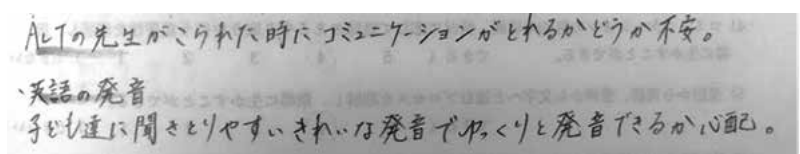 ALTの先生がこられた時にコミュニケーションがとれるかどうか不安。
・英語の発音
子ども達に聞きとりやすいきれいな発音でゆっくりと発音できるか心配。